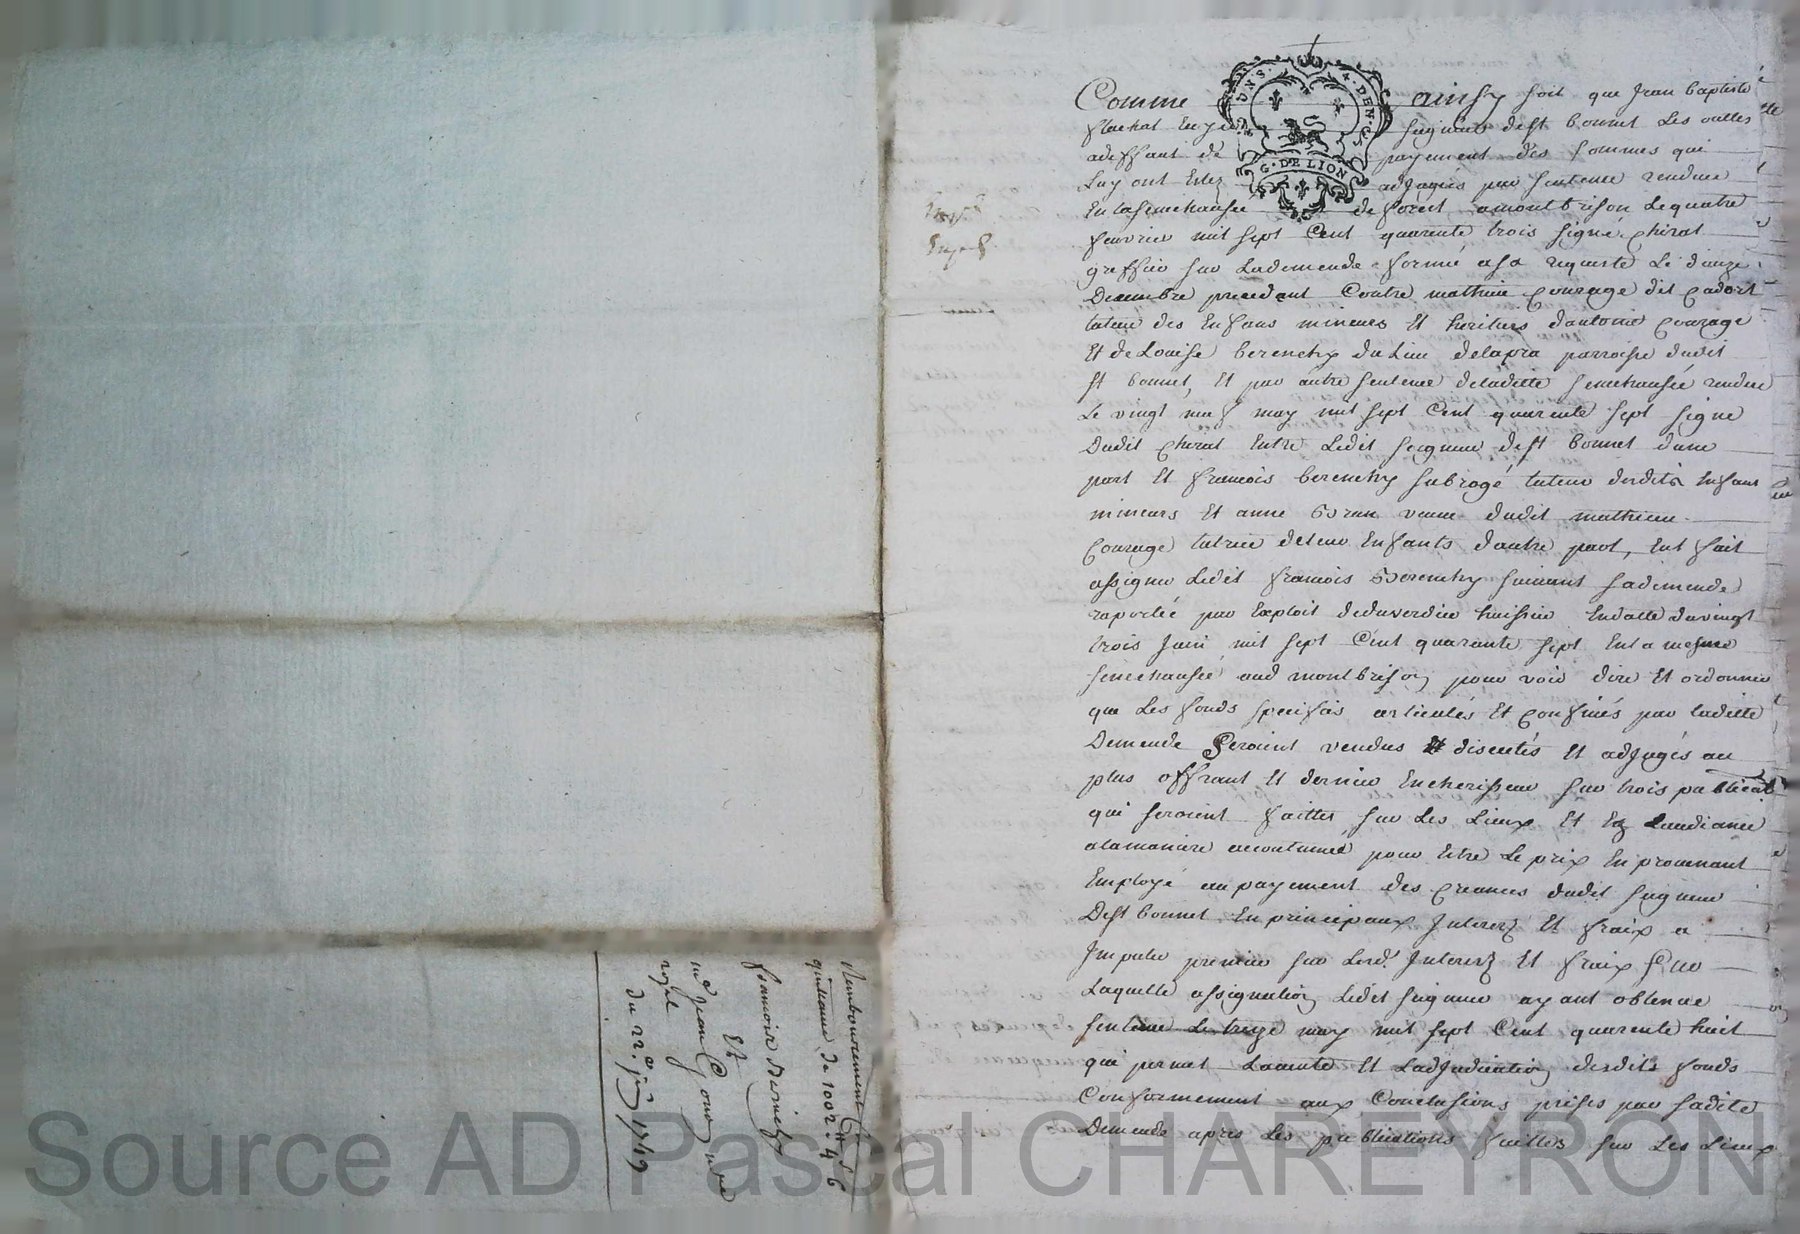 Comme ainsy soit que Jean baptiste
flachat Ecuyer seigneur de st bonnet Les oulles
adeffaut de payement des sommes qui
Luy ont Estez adjugées par sentence rendue
En la senechaussée de forest a montbrison Le quatre
fevrier mil sept Cent quarente trois signé chirat
greffier sur La demende formée a sa requeste Le douze
Decembre precedent Contre mathieu Courage dit cadort
tuteur des Enfans mineurs Et heritiers d'antoine Courage
Et de Louise berenchy du Lieu de la pra parroisse dudit
st bonnet, Et par autre sentence de laditte senechaussée rendue
Le vingt neuf may mil sept Cent quarente sept signé
Dudit chirat Entre Ledit seigneur de st bonnet dune
part Et francois berenchy subrogé tuteur desdits Enfans
mineurs Et anne veuve dudit mathieu
Courage tutrice de leur Enfants d'autre part, Eut fait
assigner Ledit francois Berenchy suivant sa demende
raportée par Exploit de duverdier huissier En datte du vingt
trois Juin mil sept Cent quarente sept En la mesme
senechaussée aud montbrison pour voir dire Et ordonner
que Les fonds speciffiés articulés Et Confinés par laditte
Demende Seroient vendus Et discutés Et adjugés au
plus offrant Et dernier Encherisseur sur trois publicat
qui seroient faittes sur Les Lieux Et En Laudiance
a la maniere accoutumée pour Estre Le prix En provenant
Employé au payement des Creances dudit seigneur
De st bonnet En principaux Interez Et fraix a
Imputer premier sur Lesd. Interez Et fraix sur
Laquelle assignation Ledit seigneur ayant obtenue
sentence Le treize may mil sept Cent quarente huit
qui permet La vente Et Ladjudication desdits fonds
Conformement aux Conclusions prises par sadite
Demende apres Les publications faittes sur Les Lieux
G. DE LION
Remboursement
quittance de 1002 ₶ 4 s 6
francois Berenchy
Et
me Jean
royal
du 22e jin 1749
Source AD Pascal CHAREYRON